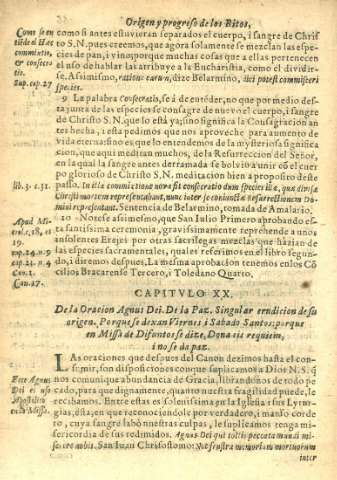 Origen y progreso de los Ritos,
Como se en
tiẽde el Hæc
commixtio,
& consecra
tio.
Sup. cap. 27
como si antes estuvieran separados el cuerpo, i sangre de Chris
to S.N. pues creemos, que agora solamente se mezclan las espe
cies de pan, i vino, porque muchas cosas que a ellas pertenecen
el uso de hablar las atribuye a la Eucharistia, como el dividir-
se. Assimismo, ratione earum, dize Belarmino, dici potest commisceri
species.
9 La palabra Consecratio, se à de entẽder, no que por medio des-
ta junta de las especies se consagre de nuevo el cuerpo, i sangre
de Christo S.N. que lo està ya; sino significa la Consagracion an
tes hecha, i esta pedimos que nos aproveche para aumento de
vida eterna: sino es que lo entendemos de la mysteriosa significa
cion, que aqui meditan muchos, de la Resurreccion del Señor,
en la qual la sangre antes derramada bolviò a unir cõ el cuer
po glorioso de Christo S.N. meditacion bien a proposito de este
lib. 3. c. 31.
passo. In illa commixtione nova fit consecratio dum species illæ, quæ divisæ
Christi mortem representabant, nunc inter se coniunctæ resurrectionem Do
mini representant. Sentencia de Belarmino, tomada de Amalario.
Apud Mi-
crol. c. 18, &
19.
cap. 24. n. 9
cap. 21. n. 4
Con. 1.
Can. 27.
10 Notese assimismo, que San Iulio Primero aprobando es-
ta santissima ceremonia, gravissimamente reprehende a unos
insolentes Erejes por otras sacrilegas mezclas que hazian de
las especies sacramentales, quales referimos en el libro segun-
do, i diremos despues. La mesma aprobacion tenemos en los Cõ
cilios; Bracarense Tercero, i Toledano Quarto.
CAPITVLO XX.
De la Oracion Agnus Dei. De la Paz. Singular erudicion de su
origen. Porque se dexan Viernes i Sabado Santos; porque
en Missa de Difuntos se dize, Dona eis requiem,
i no se da paz.
Este Agnus
Dei es uso
Apostolico
en la Missa.
LAs oraciones que despues del Canon dezimos hasta el con-
sumir, son disposiciones con que suplicamos a Dios N.S. q̃
nos comunique abundancia de Gracia, librandonos de todo pe
cado, para que dignamente, quanto nuestra fragilidad puede, le
recibamos. Entre estas es solenissima en la Iglesia: sus Lyrur-
gias, esta, en que reconociendole por verdadero, i manso corde
ro, cuya sangre labò nuestras culpas, le suplicamos tenga mi-
sericordia de sus redimidos. Agnus Dei qui tollis peccata mundi mi-
serere nobis. San Iuan Chrisostomo: Non frustra memoriam mortuorum
inter